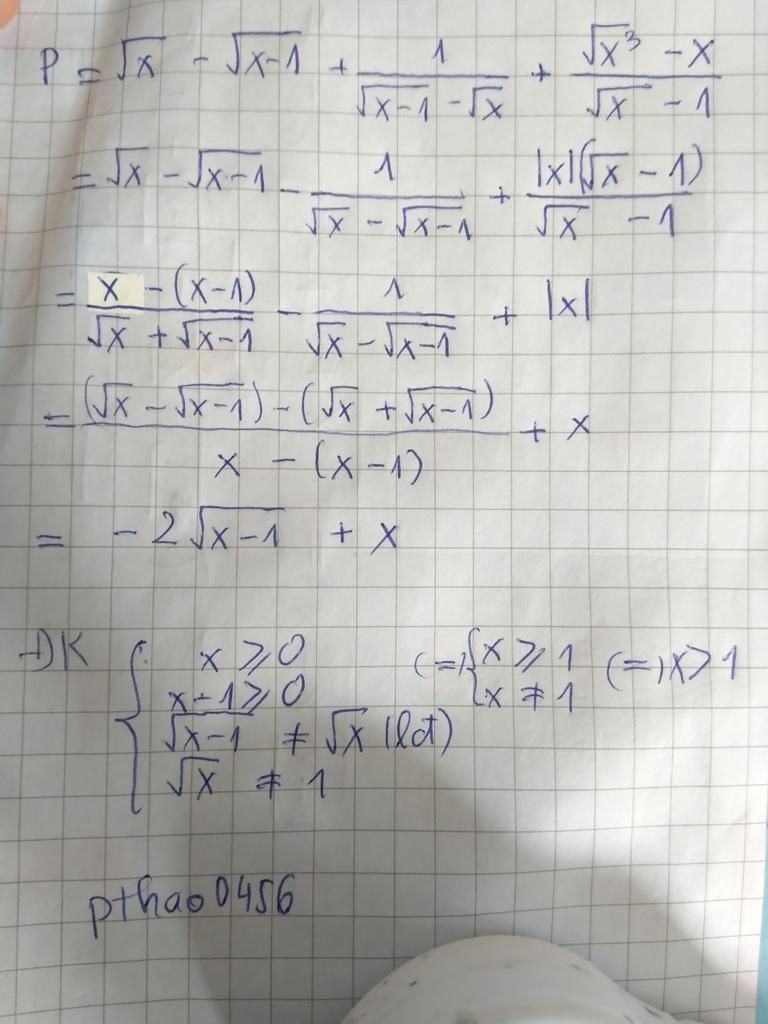 P = √x - √(x-1) + 1/(√(x-1) - √x) + (√x³ - x)/(√x - 1)
= √x - √(x-1) - 1/(√x - √(x-1)) + |x|(√x - 1)/(√x - 1)
= (x - (x-1))/(√x + √(x-1)) - 1/(√x - √(x-1)) + |x|
= ((√x - √(x-1)) - (√x + √(x-1)))/(x - (x-1)) + x
= -2√(x-1) + x
ĐK { x ≥ 0 (=) { x ≥ 1 (=) x > 1
x-1 ≥ 0 x ≠ 1
√(x-1) ≠ √x (lđ)
√x ≠ 1
pthao0456